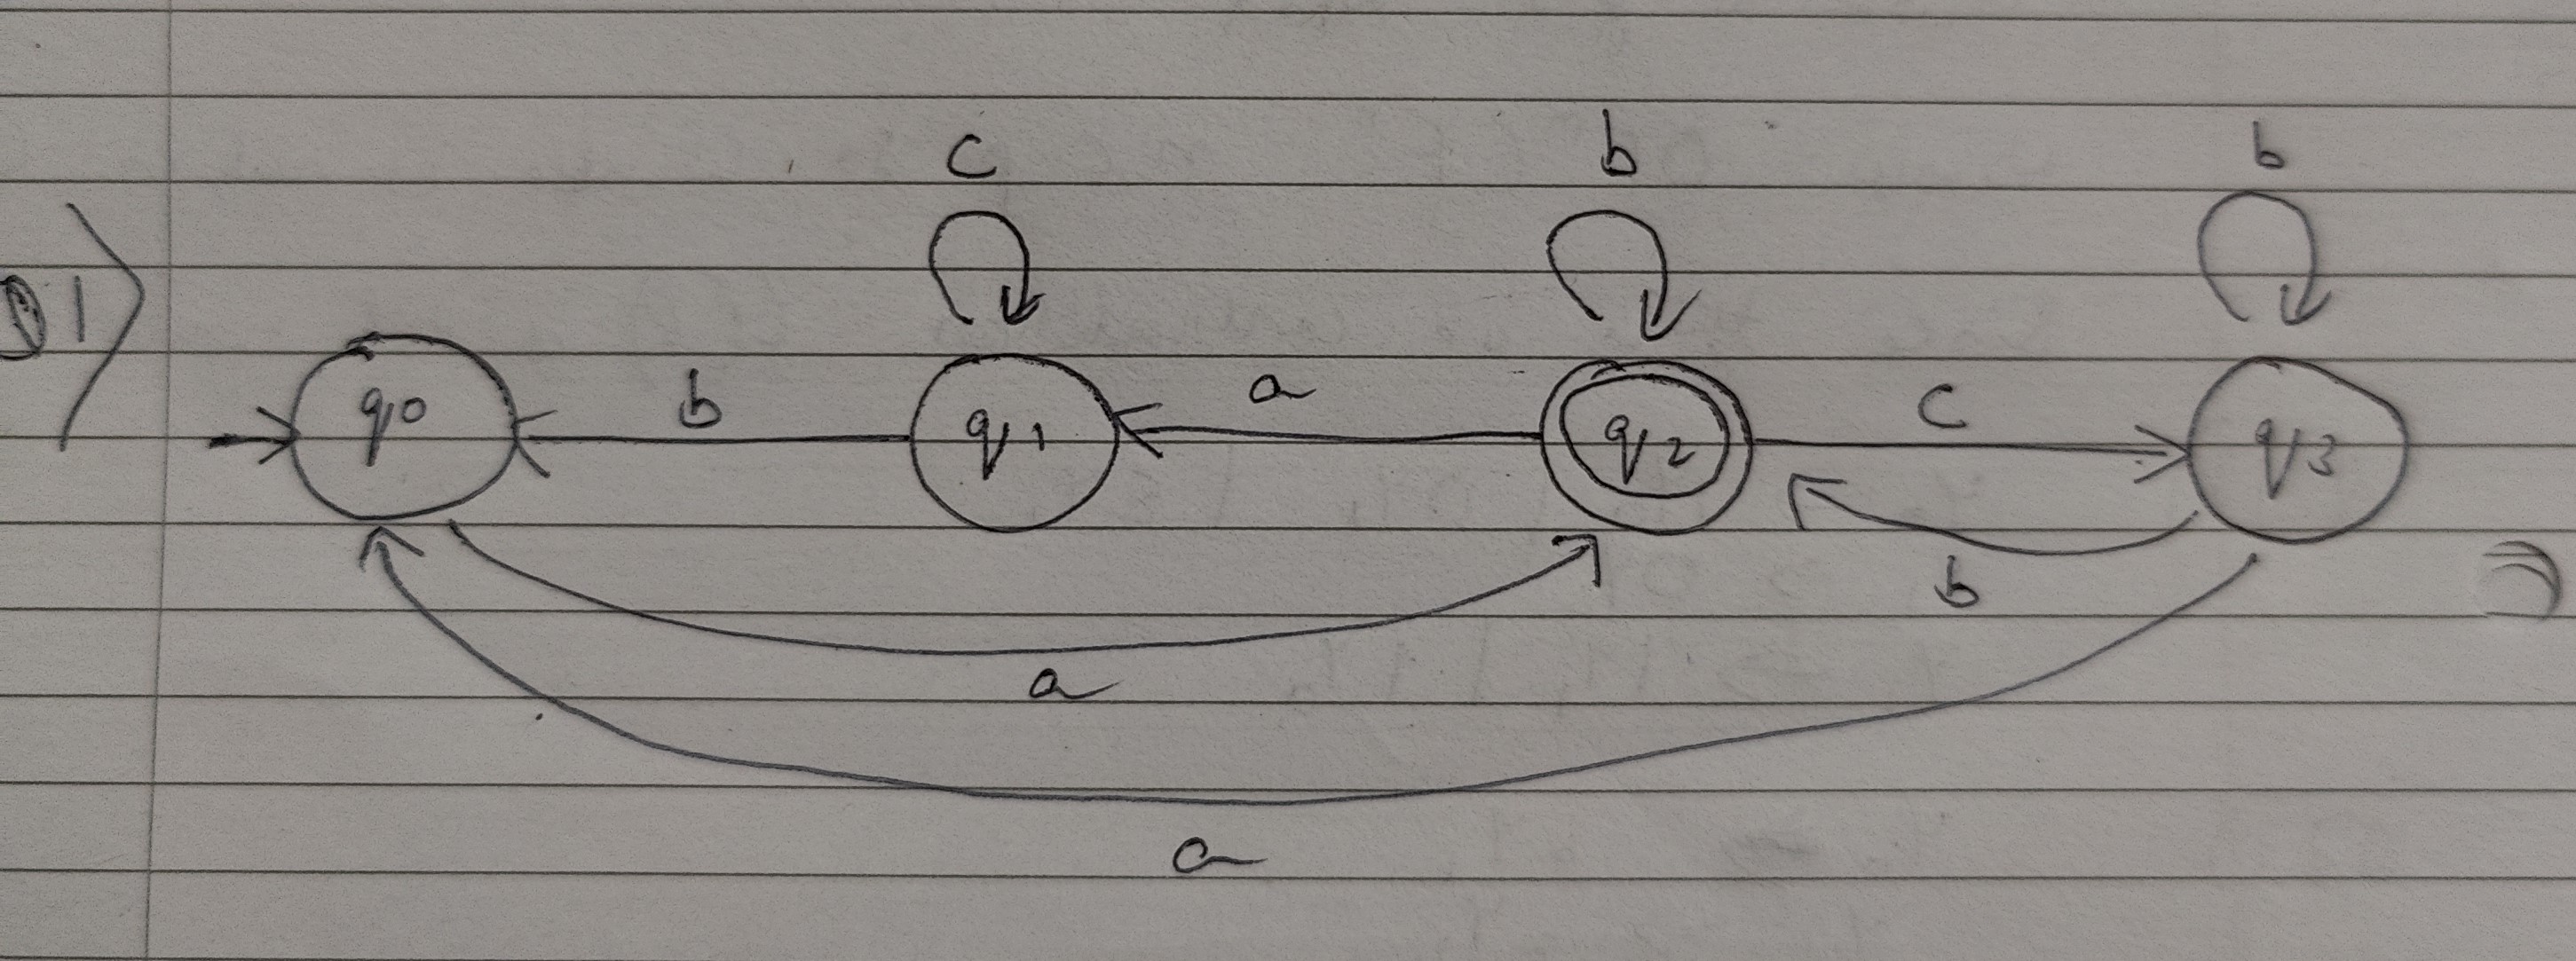 c b b
1>
q0 b q1 a q2 c q3
b
a
a